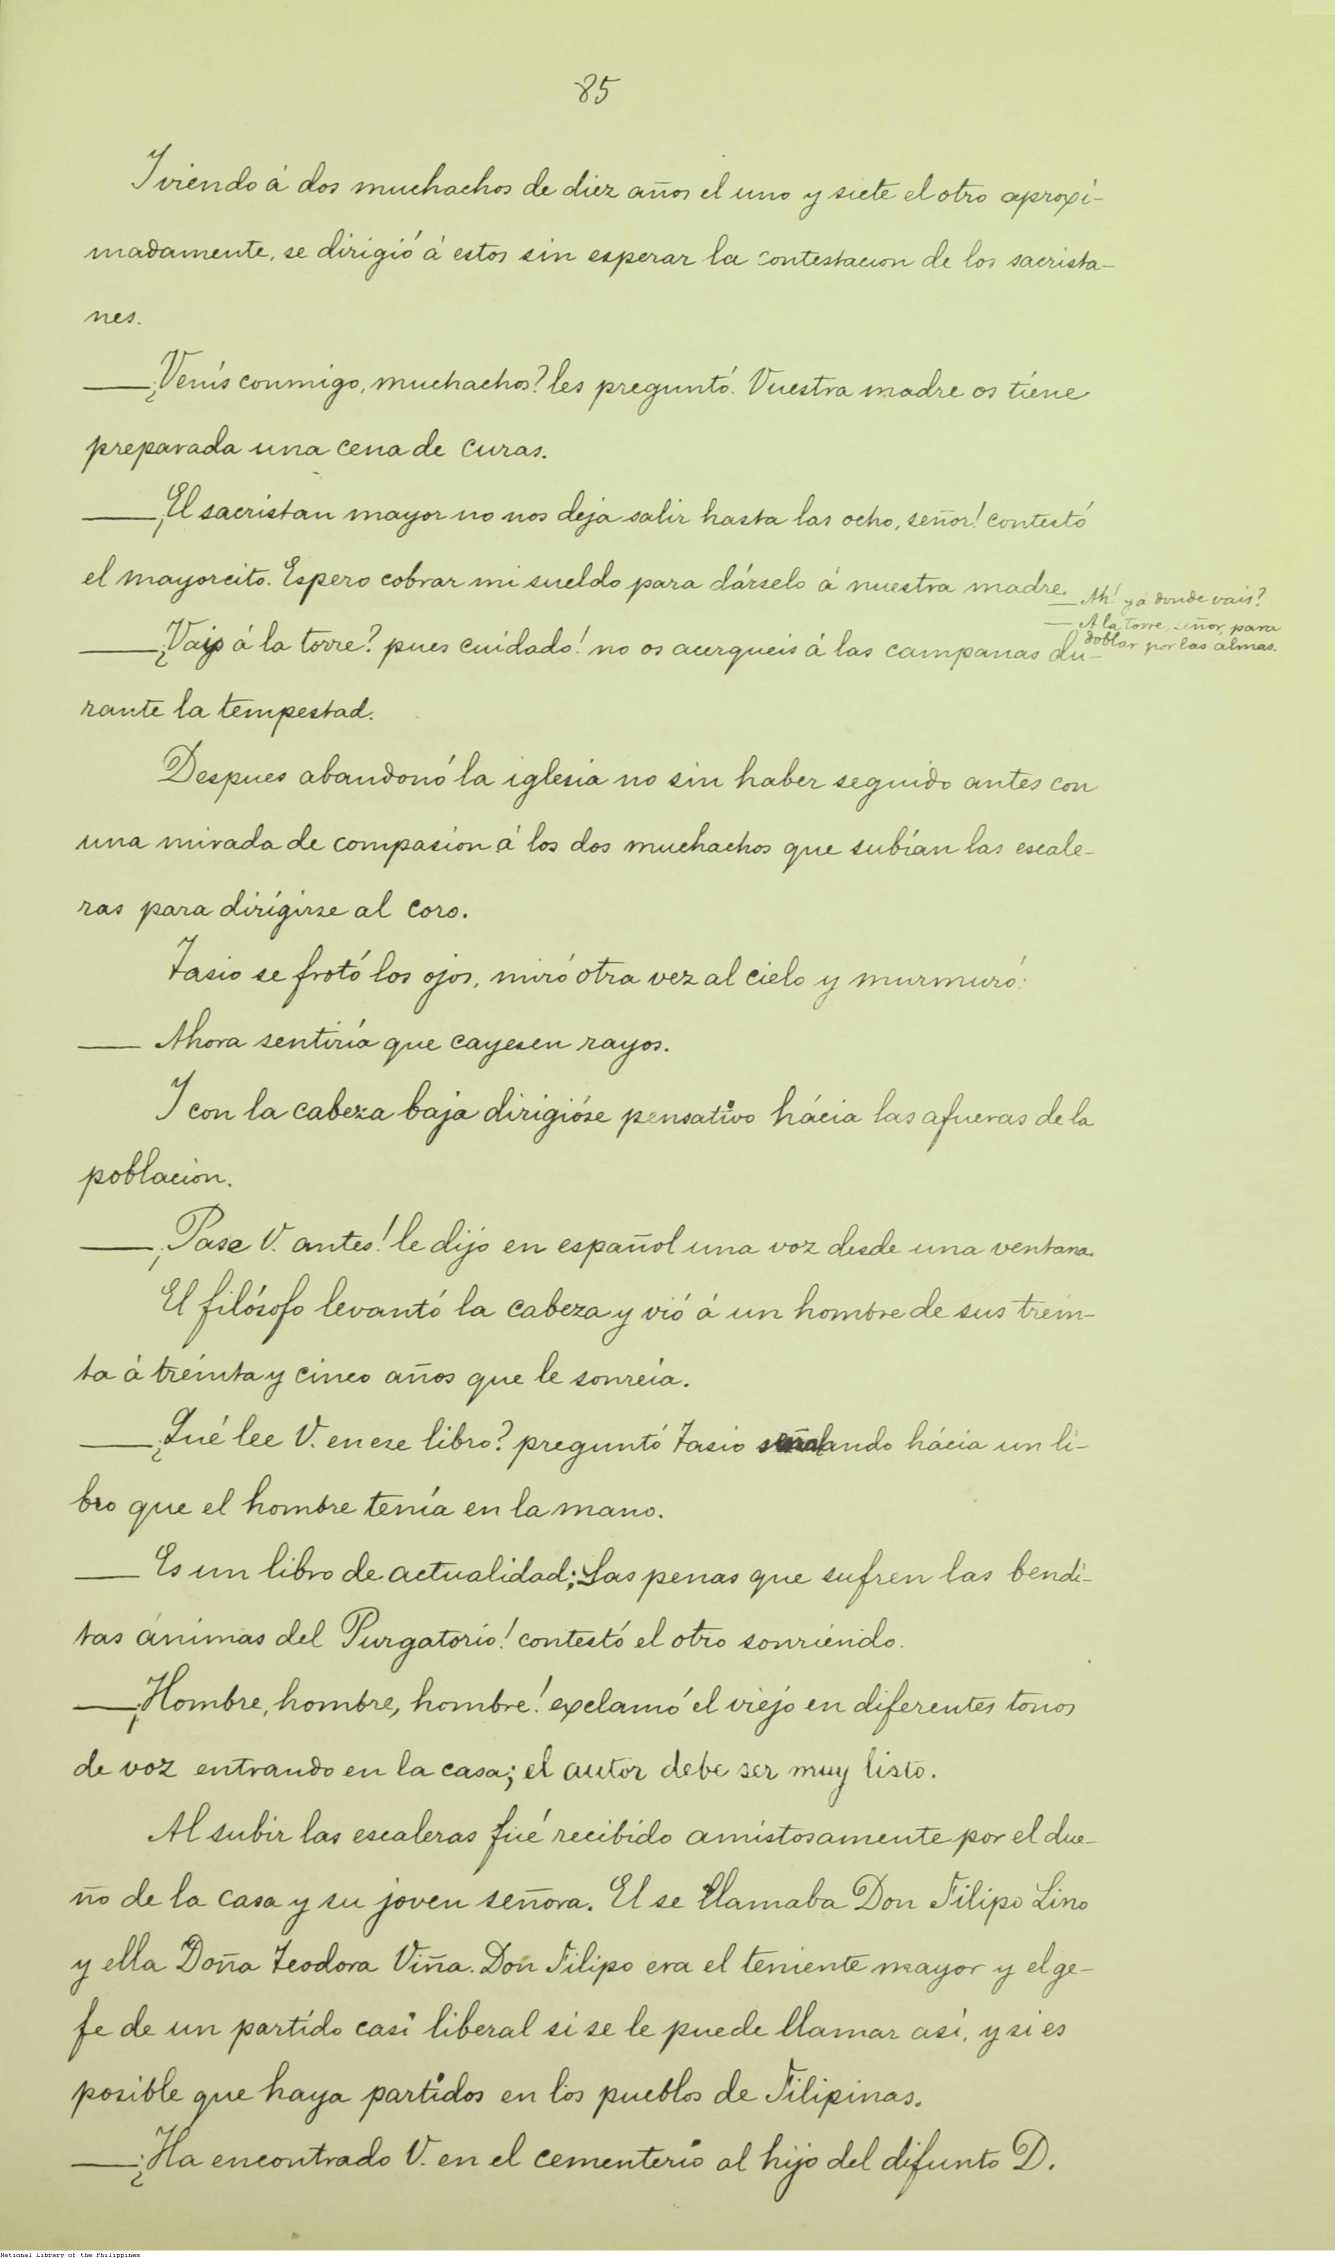 85
Y viendo á dos muchachos de diez años el uno y siete el otro aproxi-
madamente, se dirigió á estos sin esperar la contestacion de los sacrista-
nes.
— ¿Venís conmigo, muchachos? les preguntó. Vuestra madre os tiene
preparada una cena de curas.
— ¡El sacristan mayor no nos deja salir hasta las ocho, señor! contestó
el mayorcito. Espero cobrar mi sueldo para dárselo á nuestra madre.
— Ah! y á donde vais?
— A la torre, señor, para
doblar por las almas.
— ¿Vais á la torre? pues cuidado! no os acerqueis á las campanas du-
rante la tempestad.
Despues abandonó la iglesia no sin haber seguido antes con
una mirada de compasion á los dos muchachos que subían las escale-
ras para dirigirse al coro.
Tasio se frotó los ojos, miró otra vez al cielo y murmuró:
— Ahora sentiría que cayesen rayos.
Y con la cabeza baja dirigióse pensativo hácia las afueras de la
poblacion.
— ¡Pase V. antes! le dijo en español una voz desde una ventana.
El filósofo levantó la cabeza y vió á un hombre de sus trein-
ta á treinta y cinco años que le sonreía.
— ¿Qué lee V. en ese libro? preguntó Tasio señalando hácia un li-
bro que el hombre tenía en la mano.
— Es un libro de actualidad; ¡Las penas que sufren las bendi-
tas ánimas del Purgatorio! contestó el otro sonriendo.
— ¡Hombre, hombre, hombre! exclamó el viejo en diferentes tonos
de voz entrando en la casa; el autor debe ser muy listo.
Al subir las escaleras fué recibido amistosamente por el due-
ño de la casa y su joven señora. El se llamaba Don Filipo Lino
y ella Doña Teodora Viña. Don Filipo era el teniente mayor y el ge-
fe de un partido casi liberal si se le puede llamar así, y si es
posible que haya partidos en los pueblos de Filipinas.
— ¿Ha encontrado V. en el cementerio al hijo del difunto D.
National Library of the Philippines